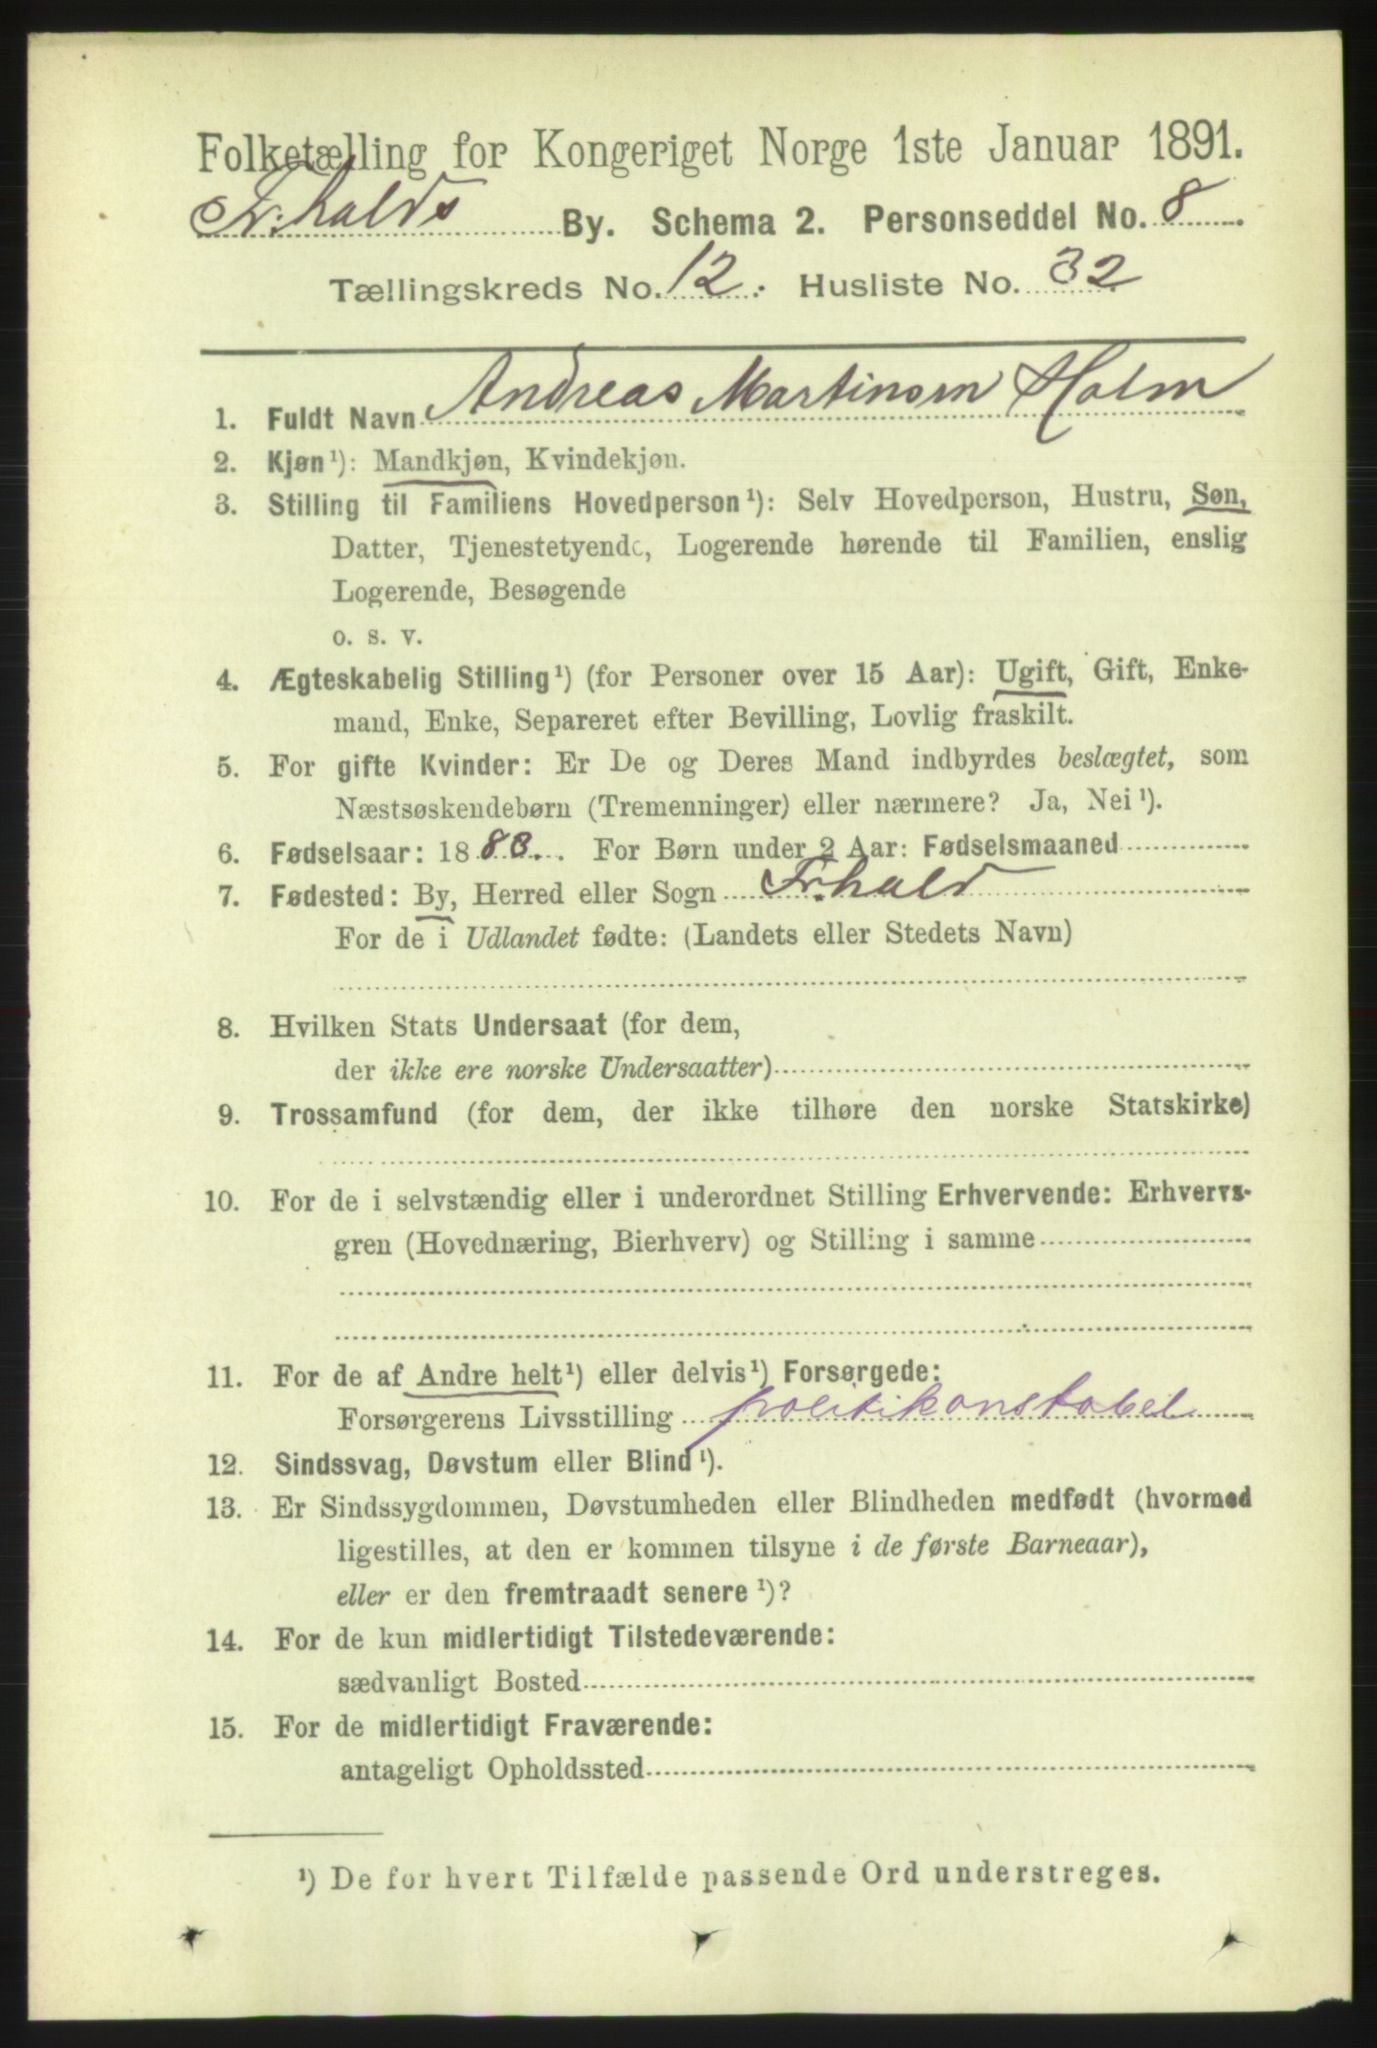 Folketælling for Kongeriget Norge 1ste Januar 1891.
Fr.halds By. Schema 2. Personseddel No. 8
Tællingskreds No. 12. Husliste No. 32
1. Fuldt Navn Andreas Martinsen Holm
2. Kjøn¹): Mandkjøn, Kvindekjøn.
3. Stilling til Familiens Hovedperson¹): Selv Hovedperson, Hustru, Søn,
Datter, Tjenestetyende, Logerende hørende til Familien, enslig
Logerende, Besøgende
o. s. v.
4. Ægteskabelig Stilling¹) (for Personer over 15 Aar): Ugift, Gift, Enke-
mand, Enke, Separeret efter Bevilling, Lovlig fraskilt.
5. For gifte Kvinder: Er De og Deres Mand indbyrdes beslægtet, som
Næstsøskendebørn (Tremenninger) eller nærmere? Ja, Nei¹).
6. Fødselsaar: 1883. For Børn under 2 Aar: Fødselsmaaned
7. Fødested: By, Herred eller Sogn Fr.hald
For de i Udlandet fødte: (Landets eller Stedets Navn)
8. Hvilken Stats Undersaat (for dem,
der ikke ere norske Undersaatter)
9. Trossamfund (for dem, der ikke tilhøre den norske Statskirke)
10. For de i selvstændig eller i underordnet Stilling Erhvervende: Erhvervs-
gren (Hovednæring, Bierhverv) og Stilling i samme
11. For de af Andre helt¹) eller delvis¹) Forsørgede:
Forsørgerens Livsstilling politikonstabel
12. Sindssvag, Døvstum eller Blind¹).
13. Er Sindssygdommen, Døvstumheden eller Blindheden medfødt (hvormed
ligestilles, at den er kommen tilsyne i de første Barneaar),
eller er den fremtraadt senere¹)?
14. For de kun midlertidigt Tilstedeværende:
sædvanligt Bosted
15. For de midlertidigt Fraværende:
antageligt Opholdssted
¹) De for hvert Tilfælde passende Ord understreges.